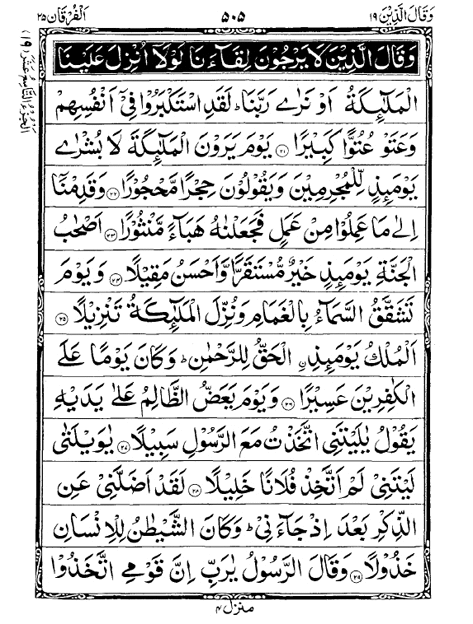 وَقَالَ الَّذِيْنَ ١٩
٥٠٥
اَلْفُرْقَان ٢٥
اَلْجُزْءُ التَّاسِعُ عَشَرَ (١٩)
وَقَالَ الَّذِيْنَ لَا يَرْجُوْنَ لِقَآءَنَا لَوْلَاۤ اُنْزِلَ عَلَيْنَا
الْمَلٰٓئِكَةُ اَوْ نَرٰى رَبَّنَا ؕ لَقَدِ اسْتَكْبَرُوْا فِيْۤ اَنْفُسِهِمْ
وَعَتَوْ عُتُوًّا كَبِيْرًا ۝٢١ يَوْمَ يَرَوْنَ الْمَلٰٓئِكَةَ لَا بُشْرٰى
يَوْمَئِذٍ لِّلْمُجْرِمِيْنَ وَيَقُوْلُوْنَ حِجْرًا مَّحْجُوْرًا ۝٢٢ وَقَدِمْنَاۤ
اِلٰى مَا عَمِلُوْا مِنْ عَمَلٍ فَجَعَلْنٰهُ هَبَآءً مَّنْثُوْرًا ۝٢٣ اَصْحٰبُ
الْجَنَّةِ يَوْمَئِذٍ خَيْرٌ مُّسْتَقَرًّا وَّاَحْسَنُ مَقِيْلًا ۝٢٤ وَيَوْمَ
تَشَقَّقُ السَّمَآءُ بِالْغَمَامِ وَنُزِّلَ الْمَلٰٓئِكَةُ تَنْزِيْلًا ۝٢٥
اَلْمُلْكُ يَوْمَئِذِ ِۨالْحَقُّ لِلرَّحْمٰنِ ؕ وَكَانَ يَوْمًا عَلَى
الْكٰفِرِيْنَ عَسِيْرًا ۝٢٦ وَيَوْمَ يَعَضُّ الظَّالِمُ عَلٰى يَدَيْهِ
يَقُوْلُ يٰلَيْتَنِى اتَّخَذْتُ مَعَ الرَّسُوْلِ سَبِيْلًا ۝٢٧ يٰوَيْلَتٰى
لَيْتَنِيْ لَمْ اَتَّخِذْ فُلَانًا خَلِيْلًا ۝٢٨ لَقَدْ اَضَلَّنِيْ عَنِ
الذِّكْرِ بَعْدَ اِذْ جَآءَنِيْ ؕ وَكَانَ الشَّيْطٰنُ لِلْاِنْسَانِ
خَذُوْلًا ۝٢٩ وَقَالَ الرَّسُوْلُ يٰرَبِّ اِنَّ قَوْمِى اتَّخَذُوْا
منزل ٤